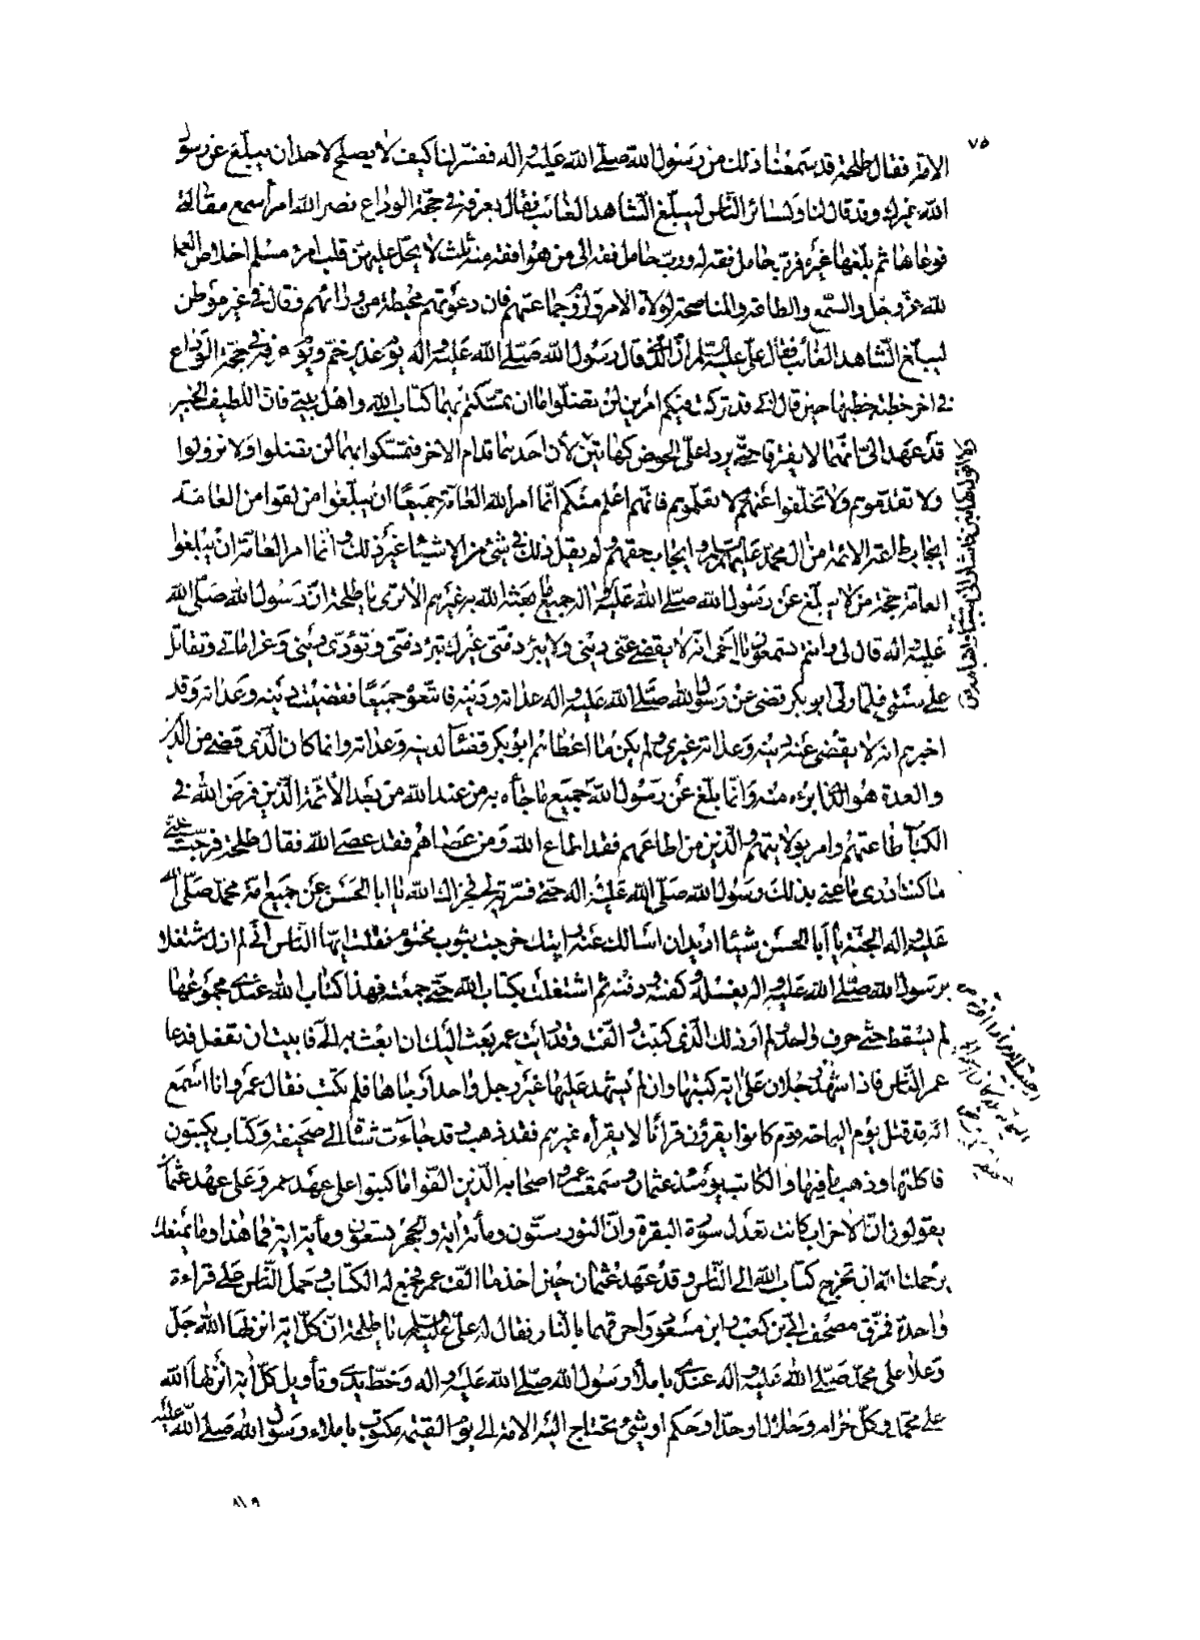 ٧٥
الامة فقال طلحة قد سمعنا ذلك من رسول الله صلى الله عليه واله ففسر لنا كيف لا يصلح لاحد ان يبلغ عن رسول
الله غيرك وقد قال لنا ولسائر الناس ليبلغ الشاهد الغائب فقال بعرفة في حجة الوداع نصر الله امرأ سمع مقالة
فوعاها ثم بلغها غيره فرب حامل فقه له ورب حامل فقه الى من هو افقه منه ثلث لا يحل عليهن قلب امرء مسلم اخلاص العمل
لله عز وجل والسمع والطاعة والمناصحة لولاة الامر ولزوم جماعتهم فان دعوتهم محيطة من ورائهم وقال في غير موطن
ليبلغ الشاهد الغائب فقال علي عليه السلام ان الذي قال رسول الله صلى الله عليه واله يوم غدير خم ويوم عرفة في حجة الوداع
في اخر خطبة خطبها حين قال اني قد تركت فيكم امرين لن تضلوا ما ان تمسكتم بهما كتاب الله واهل بيتي فان اللطيف الخبير
قد عهد الي انهما لا يفترقا حتى يردا علي الحوض كهاتين لان احدهما قدام الاخر فتمسكوا بهما لن تضلوا ولا تزولوا
ولا تقدموهم ولا تخلفوا عنهم ولا تعلموهم فانهم اعلم منكم انما امر الله العامة جميعا ان يبلغوا من لقوا من العامة
ايجاب طاعة الائمة من ال محمد عليهم السلم وايجاب حقهم ولم يقل ذلك في شئ من الاشياء غير ذلك وانما امر العامة ان يبلغوا
العامة حجة من لا يبلغ عن رسول الله صلى الله عليه واله جميع ما بعثه الله به غيرهم الا ترى يا طلحة ان رسول الله صلى الله
عليه واله قال لي وانتم تسمعون يا اخي انه لا يقضي عني ديني ولا يبرئ ذمتي غيرك تبرئ ذمتي وتؤدي ديني وغراماتي وتقاتل
على سنتي فلما ولى ابو بكر قضى عن رسول الله صلى الله عليه واله عداته ودينه فاتبعوه جميعا فقضيت دينه وعداته وقد
اخبرهم انه لا يقضي عنه دينه وعداته غيري ولم يكن ما اعطاهم ابو بكر قضاء لدينه وعداته وانما كان الذي قضى من الدين
والعدة هو الذي ابرءه منه وانما بلغ عن رسول الله جميع ما جاء به من عند الله من بعد الائمة الذين فرض الله في
الكتاب طاعتهم وامر بولايتهم الذين من اطاعهم فقد اطاع الله ومن عصاهم فقد عصى الله فقال طلحة فرجت عني
ما كنت ادري ما عنى بذلك رسول الله صلى الله عليه واله حتى فسرته لي فجزاك الله يا ابا الحسن عن جميع امة محمد صلى الله
عليه واله الجنة يا ابا الحسن شيئا اريد ان اسالك عنه رايتك خرجت بثوب مختوم فقلت ايها الناس اني لم ازل مشتغلا
برسول الله صلى الله عليه واله بغسله وكفنه ودفنه ثم اشتغلت بكتاب الله حتى جمعته فهذا كتاب الله عندي مجموعا
لم يسقط حتى حرف واحد ولم ار ذلك الذي كتبت والفت وقد رايت عمر بعث اليك ان ابعث به الي فابيت ان تفعل فدعا
عمر الناس فاذا شهد رجلان على اية كتبها وان لم يشهد عليها غير رجل واحد ارجاها فلم يكتب فقال عمر وانا اسمع
انه قد قتل يوم اليمامة قوم كانوا يقرؤن قرانا لا يقراه غيرهم فقد ذهب وقد جاءت شاة الى صحيفة وكتاب يكتبون
فاكلتها وذهب ما فيها والكاتب يومئذ عثمان وسمعت عمر واصحابه الذين الفوا ما كتبوا على عهد عمر وعلى عهد عثمان
يقولون ان الاحزاب كانت تعدل سورة البقرة وان النور ستون ومأة اية والحجر تسعون ومأية اية فما هذا وما يمنعك
يرحمك الله ان تخرج كتاب الله الى الناس وقد عهد عثمان حين اخذ ما الف عمر فجمع له الكتاب وحمل الناس على قراءة
واحدة فمزق مصحف ابي بن كعب وابن مسعود واحرقهما بالنار فقال له علي عليه السلم يا طلحة ان كل اية انزلها الله جل
وعلا على محمد صلى الله عليه واله عندي باملاء رسول الله صلى الله عليه واله وخط يدي وتاويل كل اية انزلها الله
على محمد وكل حرام وحلال او حد او حكم او شئ يحتاج اليه الامة الى يوم القيمة مكتوب باملاء رسول الله صلى الله عليه